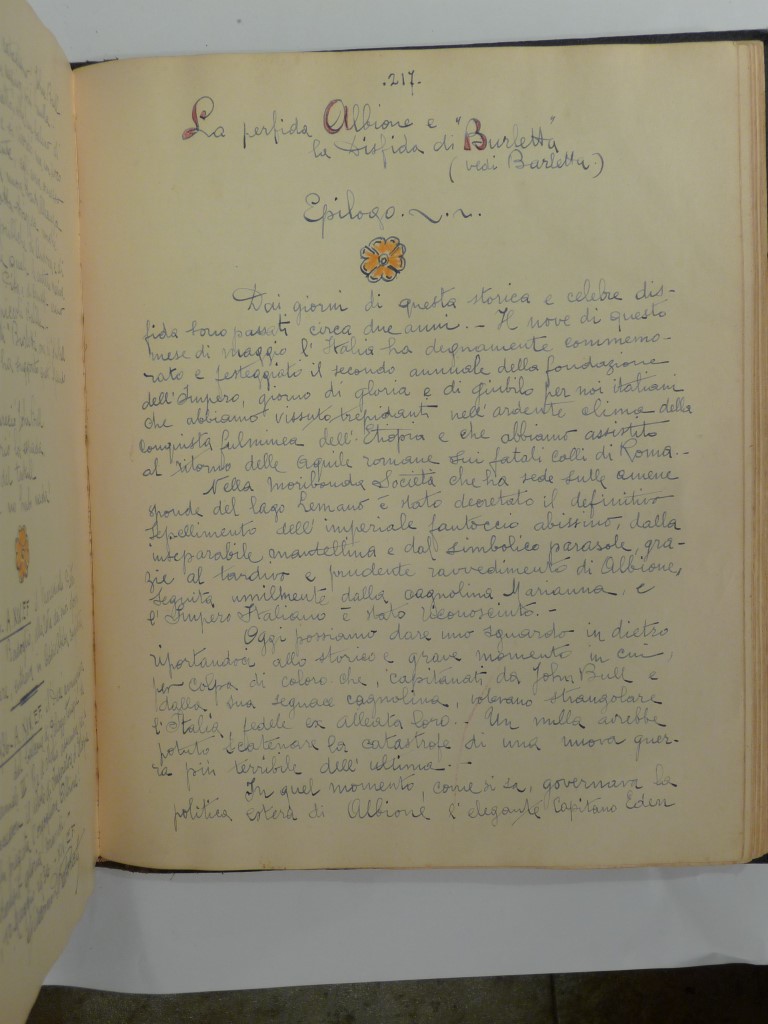 .217.
La perfida Albione e
la Disfida di "Burletta"
(vedi Barletta.)
Epilogo.
Dai giorni di questa storica e celebre dis-
fida sono passati circa due anni. - Il nove di questo
mese di maggio l'Italia ha degnamente commemo-
rato e festeggiato il secondo annuale della fondazione
dell'Impero, giorno di gloria e di giubilo per noi italiani
che abbiamo vissuto trepidanti nell'ardente clima della
conquista fulminea dell'Etiopia e che abbiamo assistito
al ritorno delle aquile romane sui fatali colli di Roma. -
Nella moribonda Società che ha sede sulle amene
sponde del lago Lemano è stato decretato il definitivo
seppellimento dell'imperiale fantoccio abissino, dalla
inseparabile mantellina e dal simbolico parasole, gra-
zie al tardivo e prudente ravvedimento di Albione,
seguita umilmente dalla cagnolina Marianna, e
l'Impero Italiano è stato riconosciuto. -
Oggi possiamo dare uno sguardo in dietro
riportandoci allo storico e grave momento in cui,
per colpa di coloro che, capitanati da John Bull e
dalla sua seguace cagnolina, volevano strangolare
l'Italia, fedele ex alleata loro. - Un nulla avrebbe
potuto scatenare la catastrofe di una nuova guer-
ra più terribile dell'ultima. -
In quel momento, come si sa, governava la
politica estera di Albione l'elegante Capitano Eden